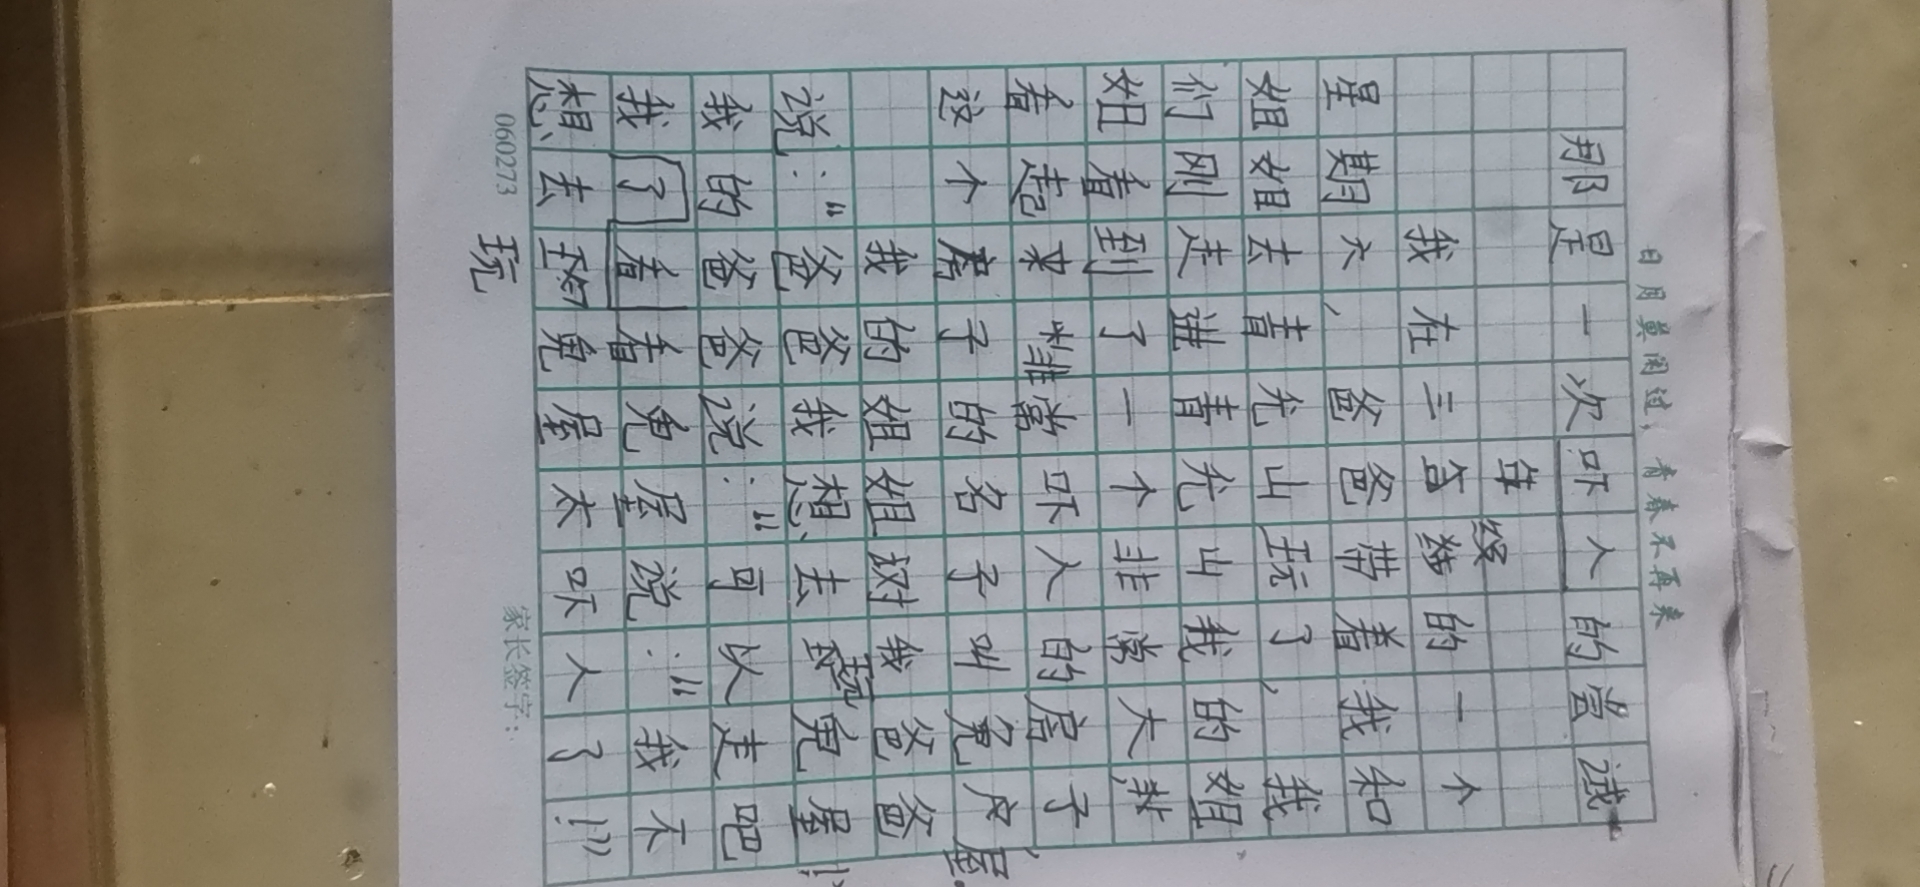 日月莫闲过，青春不再来
那是一次吓人的尝试
年级
我在二的一个
星期六、爸爸带着我和
姐姐去青允山玩了，我
们刚走进青允山我的姐
姐看到了一个非常大
看起来非常吓人的房子，
这个房子的名子叫鬼屋。
我的姐姐对我爸爸
说：“爸爸我想去玩鬼屋！”
我的爸爸说：“可以走吧
我了看看鬼屋说：“我不
想去玩鬼屋太吓人了！”
060273 家长签字：